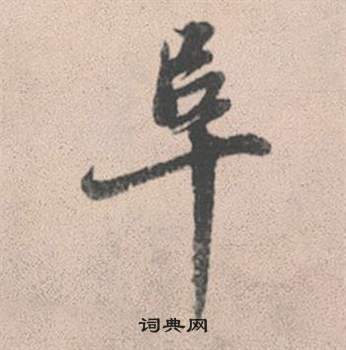 阜
词典网